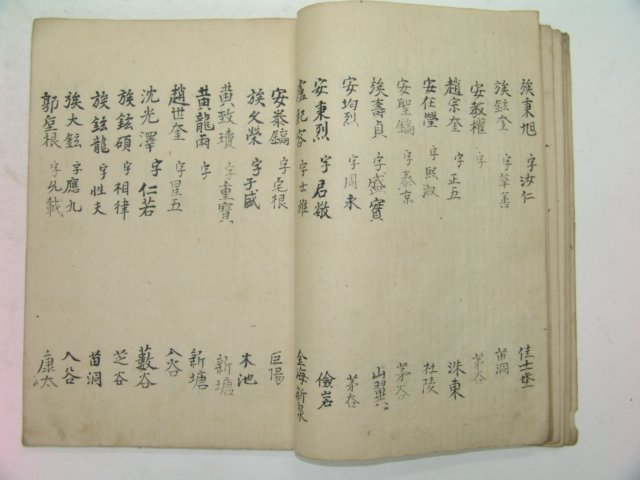 族東旭 字汝仁 佳士㘴
族鉉奎 字華善 苗洞
安敎權 字 茅谷
趙宗奎 字正五 洙東
安在瀅 字熙淑 杜陵
安聖鎬 字泰京 茅谷
族壽貞 字盛寶 山翼
安均烈 字周永 茅谷
安秉烈 字君敬 儉岩
盧紀容 字士雄 金海新泉
安泰鎬 根 巨陽
族文榮 字子盛 木池
黃致瓚 字重寶 新塘
黃龍雨 字 新塘
趙世奎 字星五 入谷
沈光澤 字仁若 藪谷
族鉉碩 字相律 芝谷
族鉉龍 字性夫 苗洞
族大鉉 字應九 入谷
郭聖根 字允載 康太